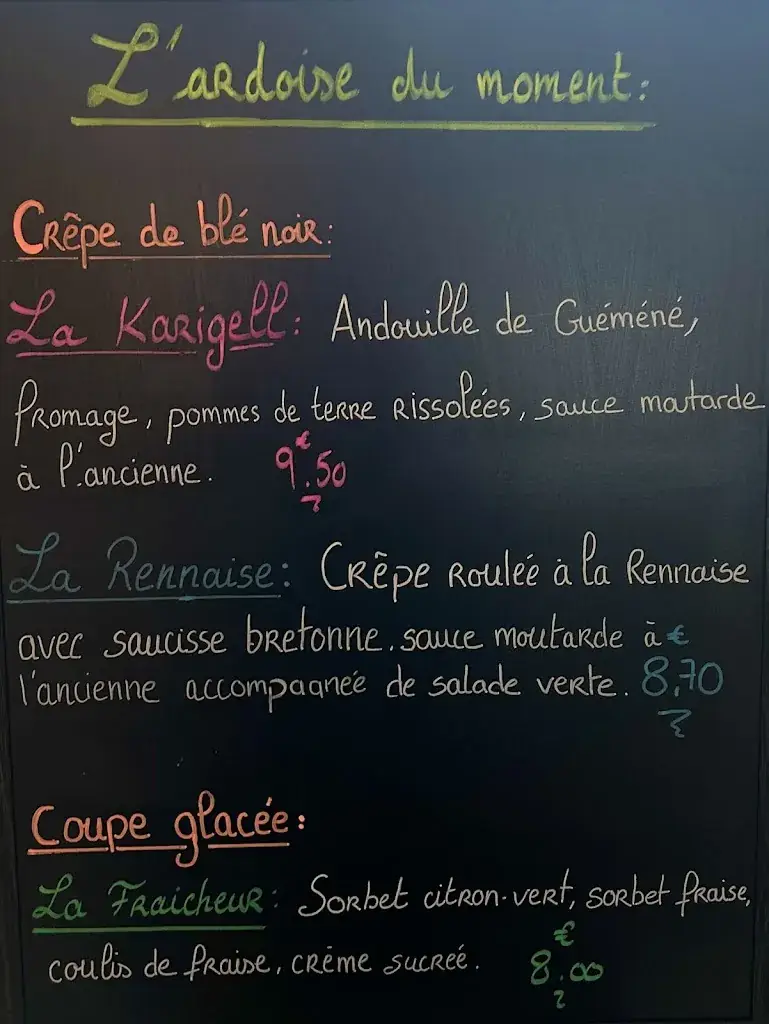 L'ardoise du moment:
Crêpe de blé noir:
La Karigell: Andouille de Guéméné,
fromage, pommes de terre rissolées, sauce moutarde
à l'ancienne. 9.50 €
La Rennaise: Crêpe rouleé à la Rennaise
avec saucisse bretonne. sauce moutarde à
l'ancienne accompagneé de salade verte. 8,70 €
Coupe glacée:
La Fraicheur: Sorbet citron-vert, sorbet fraise,
coulis de fraise, crème sucreé. 8.00 €